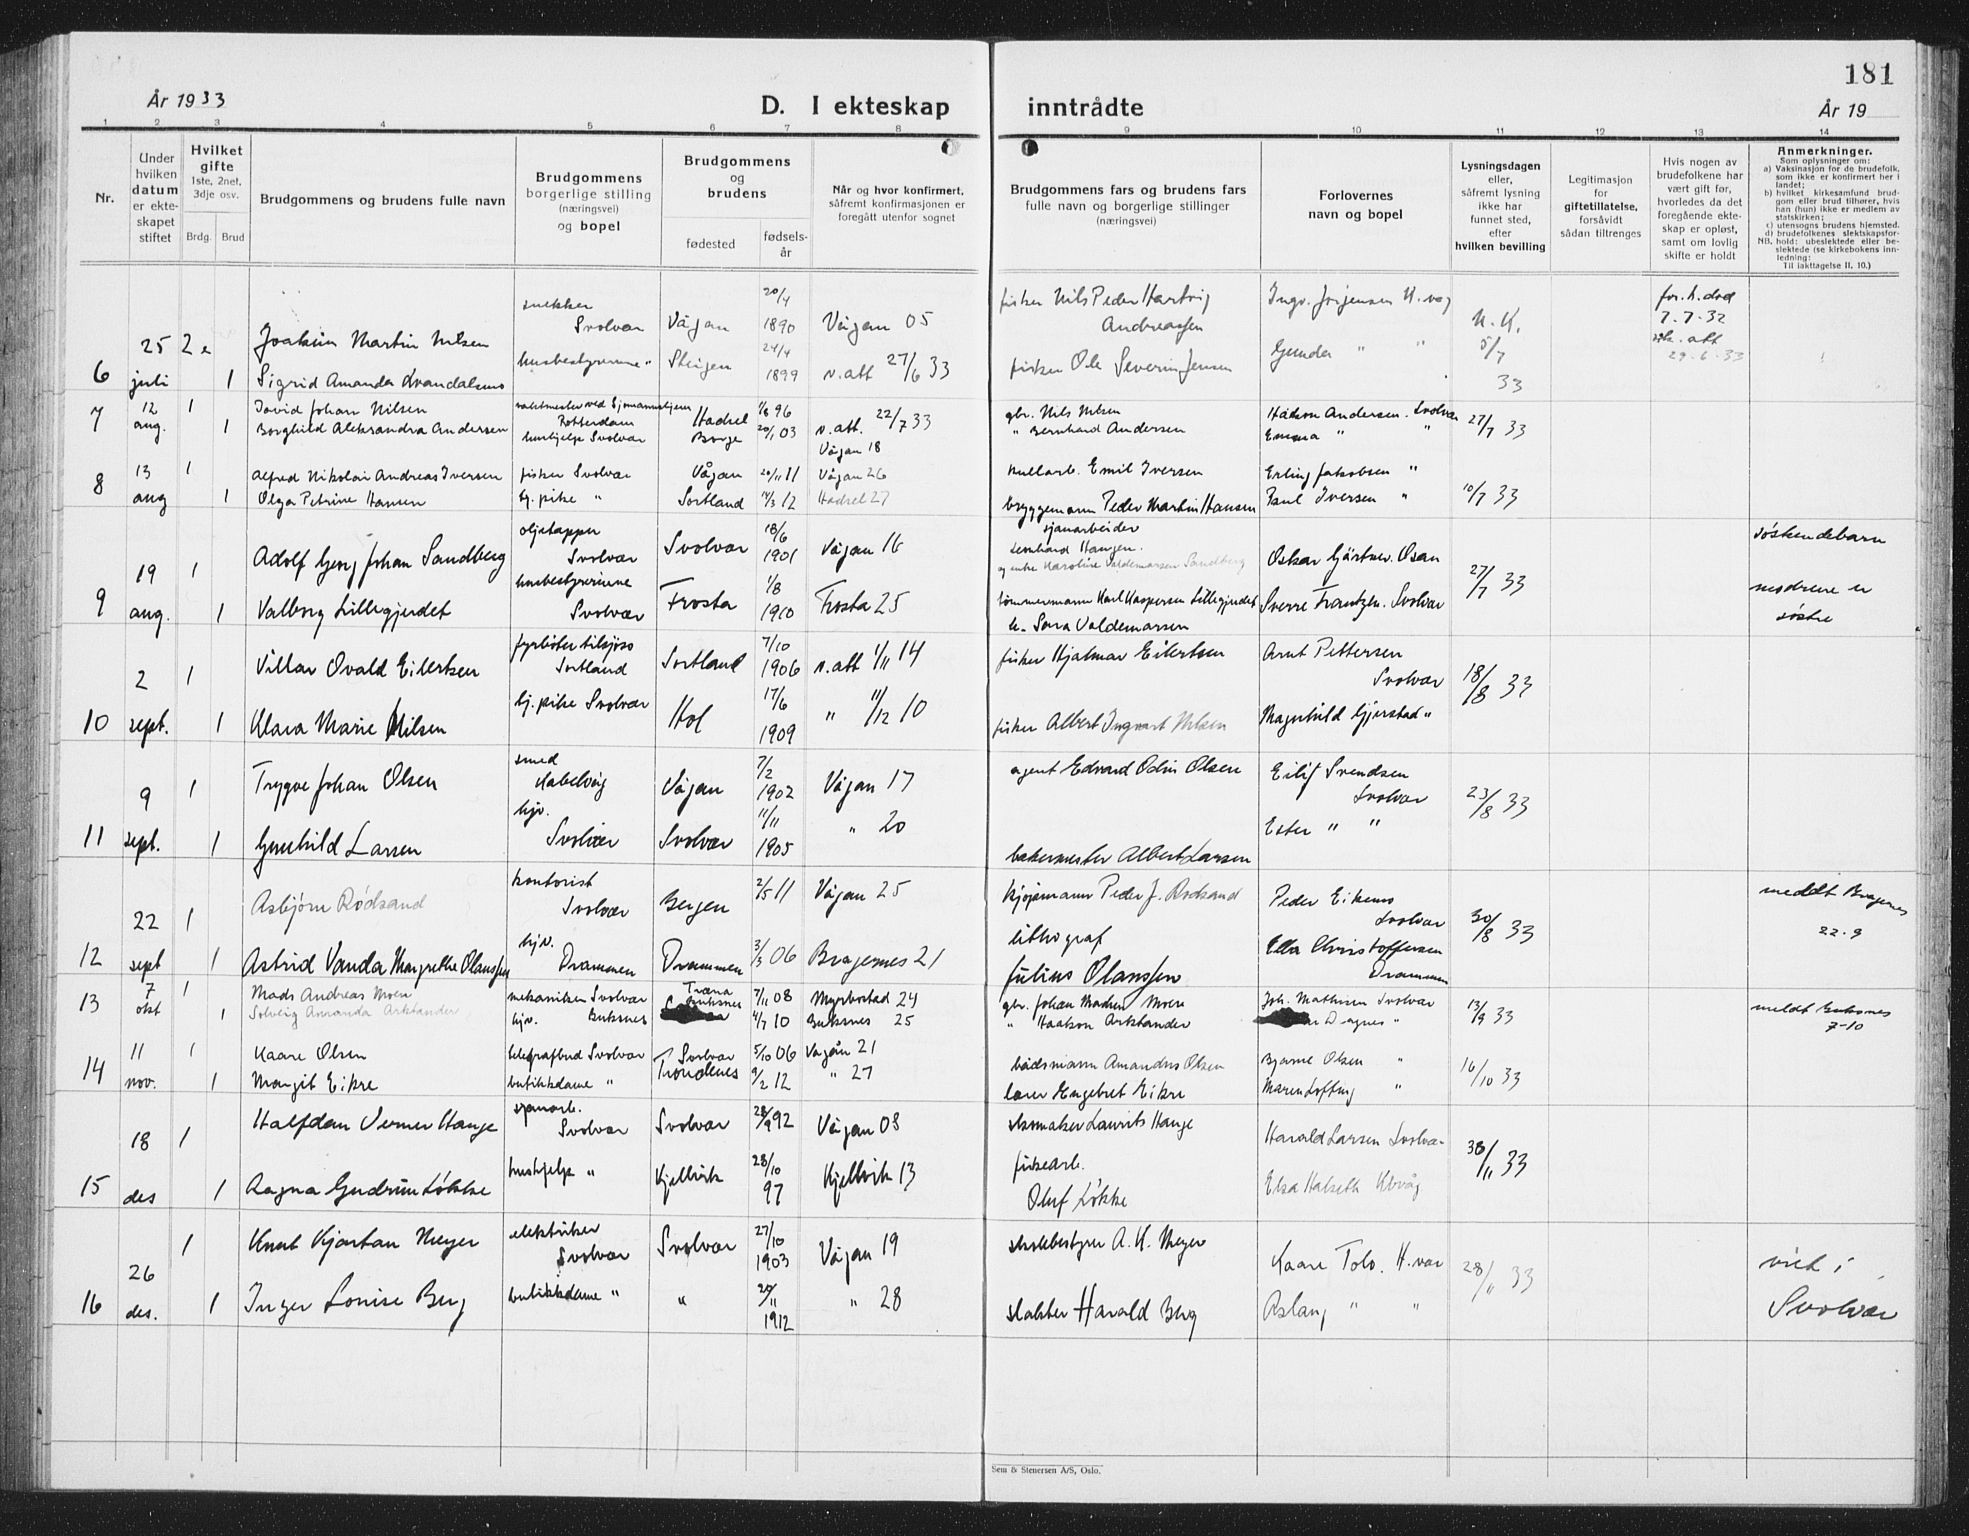 181
År 1933
D. I ekteskap inntrådte
År 19
1 2 3 4 5 6 7 8 9 10 11 12 13 14
Nr.
Under hvilken datum er ekteskapet stiftet
Hvilket gifte
1ste, 2net, 3dje osv.
Brdg. Brud
Brudgommens og brudens fulle navn
Brudgommens borgerlige stilling (næringsvei) og bopel
Brudgommens og brudens
fødested
fødselsår
Når og hvor konfirmert, såfremt konfirmasjonen er foregått utenfor sognet
Brudgommens fars og brudens fars fulle navn og borgerlige stillinger (næringsvei)
Forlovernes navn og bopel
Lysningsdagen eller, såfremt lysning ikke har funnet sted, efter hvilken bevilling
Legitimasjon for giftetillatelse, forsåvidt sådan tiltrenges
Hvis nogen av brudefolkene har vært gift før, hvorledes da det foregående ekteskap er opløst, samt om lovlig skifte er holdt
Anmerkninger.
Som oplysninger om:
a) Vaksinasjon for de brudefolk, som ikke er konfirmert her i landet;
b) hvilket kirkesamfund brudgom eller brud tilhører, hvis han (hun) ikke er medlem av statskirken;
c) utensogns brudens hjemsted.
d) brudefolkenes slektskapsforhold: ubeslektede eller beslektede (se kirkebokens innledning:
NB.
Til iakttagelse II, 10.)
6 25 juli 2 Joakim Martin Nilsen snekker Svolvær Vågan 20/4 1890 Vågan 05 fisker Nils Peder Hartvig Andreassen Ingv. Jørgensen K.våg N.K. 5/7 33 for. h. død 7.7.32 att 29.6.33
1 Sigrid Amanda husbestyrerinne " Steigen 24/4 1899 n. att 27/6 33 fisker Ole Severin Jensen Gunda " "
7 12 aug. 1 David Johan Nilsen ved Sjømannshjem Rotterdam Hadsel 1/8 96 n. att. 22/7 33 gbr. Nils Nilsen Håkon Andersen. Svolvær 27/7 33
1 Borghild Aleksandra Andersen hushjelp Svolvær Borge 20/1 03 Vågan 18 " Bernhard Andersen Emma " "
8 13 aug 1 Alfred Nikolai Andreas Iversen fisker Svolvær Vågan 20/11 11 Vågan 26 Emil Iversen Erling Jakobsen " 10/7 33
1 Olga Petrine Hansen hj. pike " Sortland 14/3 12 Hadsel 27 bryggemann Peder Martin Hansen Paul Iversen "
9 19 aug. 1 Adolf Georg Johan Sandberg oljetapper Svolvær Svolvær 18/6 1901 Vågan 16 sjauarbeider Hangen. og enke Karoline Valdemarsen Sandberg Oskar Gjærtner. Osan 27/7 33 søskendebarn
1 Valborg Lillegjerdet husbestyrerinne Svolvær Frosta 1/8 1910 Frosta 25 tømmermann Karl Kaspersen Lillegjerdet Sara Valdemarsen Sverre Frantzen. Svolvær mødrene er søstre
10 2 sept. 1 Villar Ovald Eilertsen fyrbøter tilsjøss Sortland Sortland 7/10 1906 n. att 1/11 14 fisker Hjalmar Eilertsen Arnt Pettersen Svolvær 18/8 33
1 Klara Marie Nilsen hj. pike Svolvær Hol 17/6 1909 " 11/12 10 fisker Albert Ingvart Nilsen Magnhild Gjerstad "
11 9 sept. 1 Trygve Johan Olsen smed Kabelvåg Vågan 7/2 1902 Vågan 17 agent Edvard Odin Olsen Eilif Svendsen Svolvær 23/8 33
1 Gunhild Larsen hjv. Svolvær Svolvær 11/11 1905 " 20 bakermester Albert Larsen Ester " "
12 22 sept 1 Asbjørn Rødsand kontorist Svolvær Bergen 2/5 11 Vågan 25 kjøpmann Peder J. Rødsand Peder Eikemo Svolvær 30/8 33 meddt Bragernes 22.9
1 Astrid Vanda Margrethe Olanssen hjv. Drammen Drammen 3/3 06 Bragernes 21 lithograf Julius Olanssen Ella Christoffersen Drammen
13 7 okt 1 Mads Andreas Moen mekaniker Svolvær Træna 7/11 08 Myrbostad 24 gbr. Johan Madsen Moen Joh. Mathisen Svolvær 13/9 33 meldt Buksnes 7-10
1 Solveig Amanda Arktander hjv. Buksnes Buksnes 4/7 10 Buksnes 25 " Haakon Arktander Dagnes "
14 11 nov. 1 Kaare Olsen telegrafbud Svolvær Svolvær 5/10 06 Vågån 21 bådsmann Amandus Olsen Bjarne Olsen " 16/10 33
1 Margit Eikre butikkdame " Trondenes 9/2 12 " 27 lærer Engebret Eikre Maren Lofthug "
15 18 des 1 Halfdan Verner Hauge sjauarb. Svolvær Svolvær 28/9 92 Vågan 08 skomaker Laurits Hauge Harald Larsen Svolvær 30/11 33
1 Ragna Gudrun Løkke hushjelp " Kjelvik 28/10 97 Kjelvik 13 fiskearb. Oluf Løkke Elsa Halseth
16 26 des. 1 Knut Kjartan Meyer elektriker Svolvær Svolvær 27/10 1903 Vågan 19 skolebestyrer A. K. Meyer Kaare Tolo. 28/11 33 viet i Svolvær
1 Inger Louise Berg butikkdame " " 20/11 1912 " 28 slakter Harald Berg Aslaug " "
Sem & Stenersen A/S, Oslo.